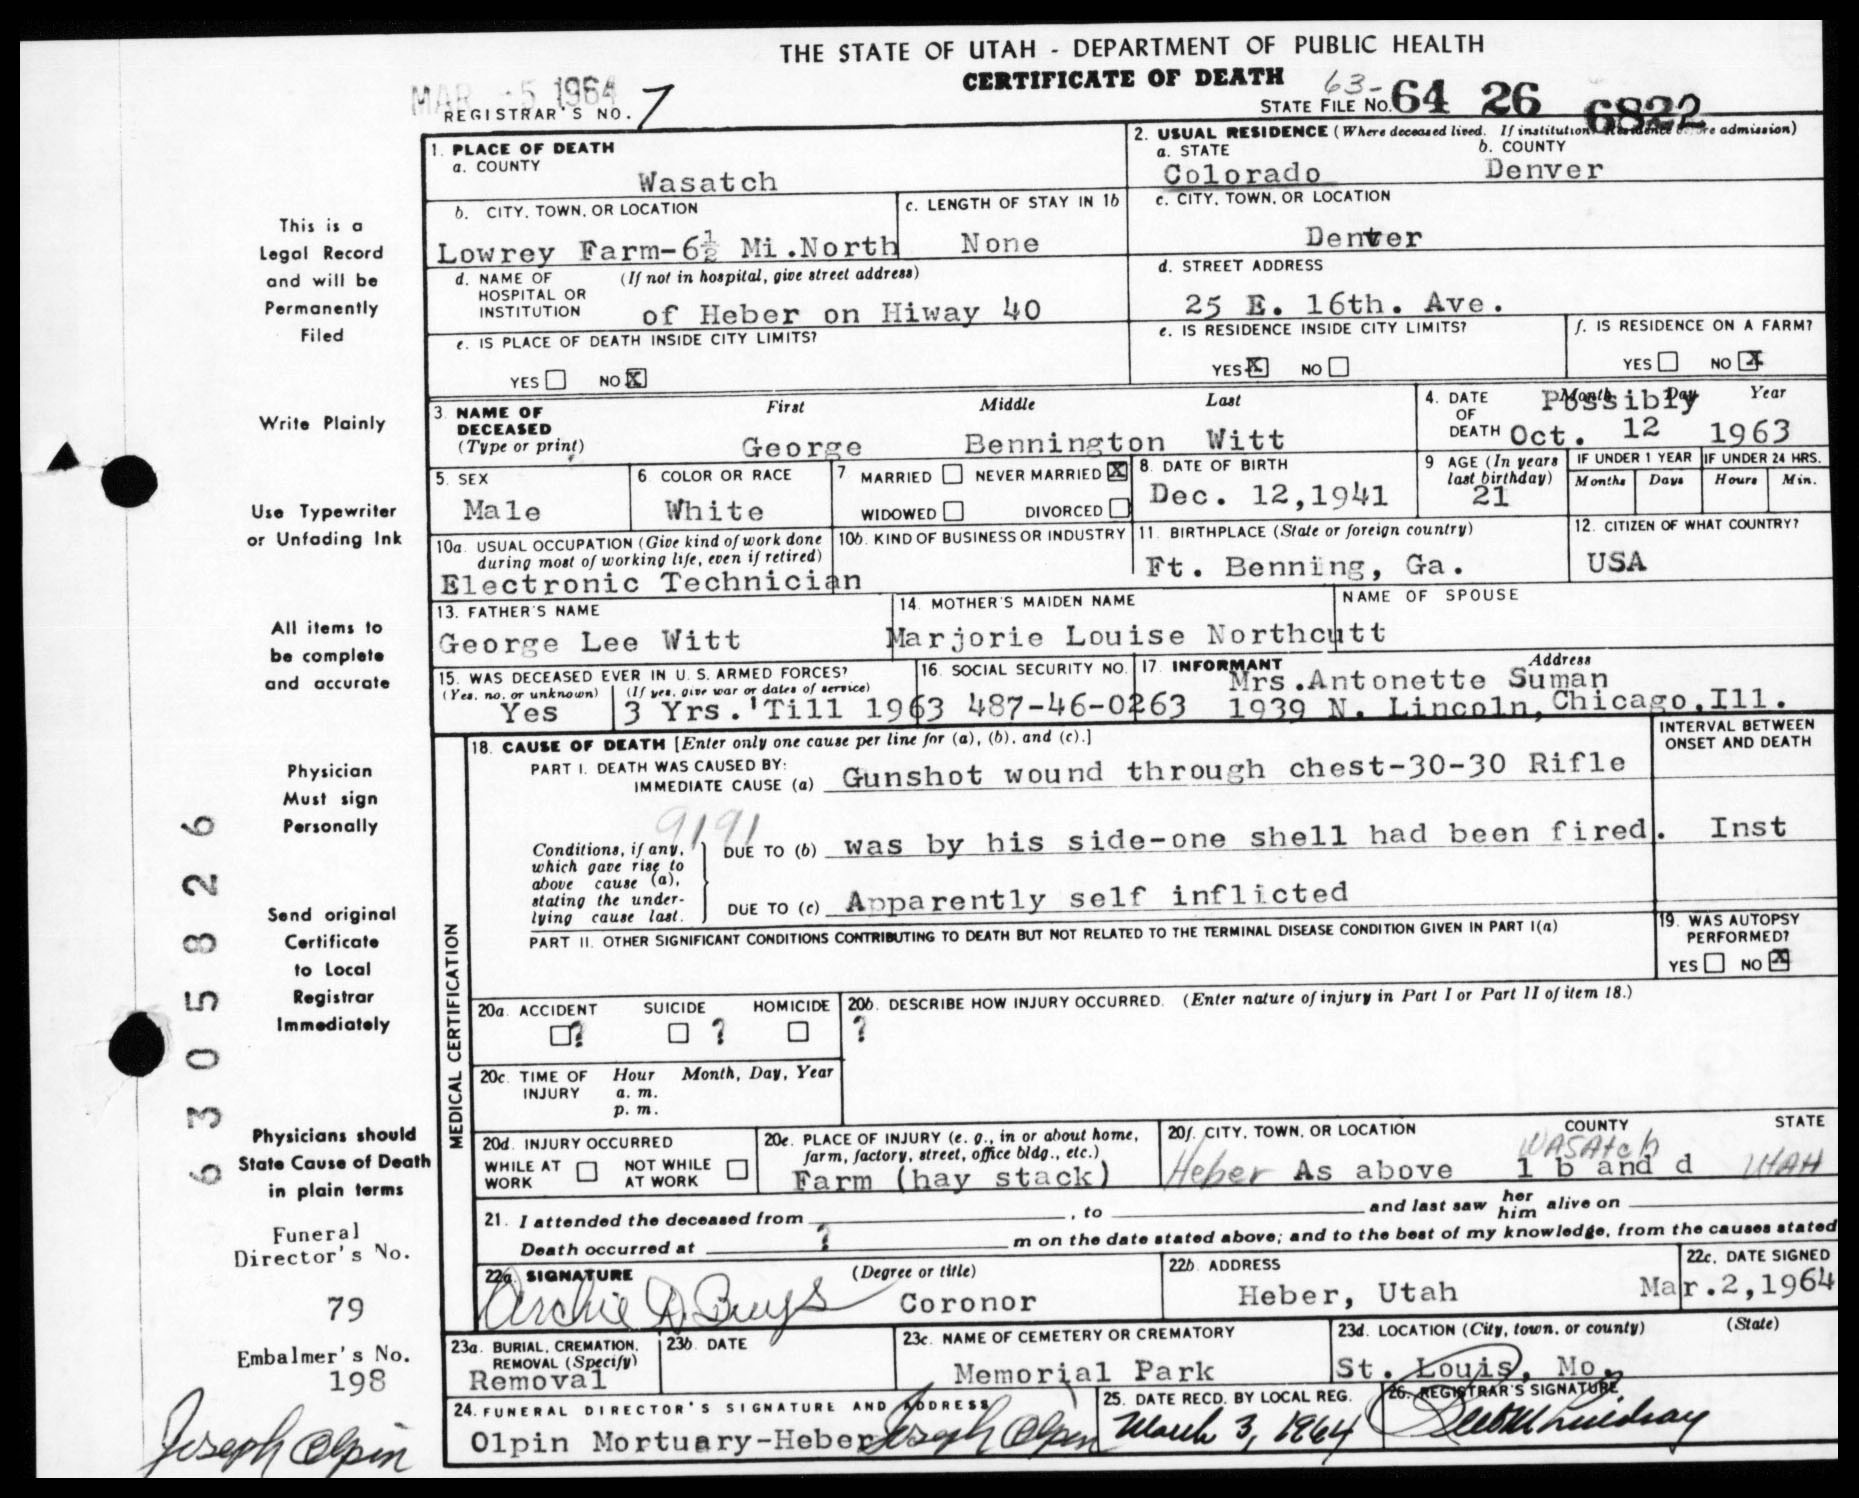 THE STATE OF UTAH - DEPARTMENT OF PUBLIC HEALTH
CERTIFICATE OF DEATH
MAR 5 1964
REGISTRAR'S NO. 7
63-
STATE FILE NO. 64 26 6822
1. PLACE OF DEATH
a. COUNTY
Wasatch
2. USUAL RESIDENCE (Where deceased lived. If institution: Residence before admission)
a. STATE b. COUNTY
Colorado Denver
b. CITY, TOWN, OR LOCATION
Lowrey Farm-6½ Mi.North
c. LENGTH OF STAY IN 1b
None
c. CITY, TOWN, OR LOCATION
Denver
d. NAME OF HOSPITAL OR INSTITUTION (If not in hospital, give street address)
of Heber on Hiway 40
d. STREET ADDRESS
25 E. 16th. Ave.
e. IS PLACE OF DEATH INSIDE CITY LIMITS?
YES NO X
e. IS RESIDENCE INSIDE CITY LIMITS?
YES X NO
f. IS RESIDENCE ON A FARM?
YES NO X
3. NAME OF DECEASED (Type or print)
First Middle Last
George Bennington Witt
4. DATE OF DEATH
Month Day Year
Possibly
Oct. 12 1963
5. SEX
Male
6. COLOR OR RACE
White
7 MARRIED NEVER MARRIED X
WIDOWED DIVORCED
8. DATE OF BIRTH
Dec. 12,1941
9 AGE (In years last birthday)
21
IF UNDER 1 YEAR
Months Days
IF UNDER 24 HRS.
Hours Min.
10a. USUAL OCCUPATION (Give kind of work done during most of working life, even if retired)
Electronic Technician
10b. KIND OF BUSINESS OR INDUSTRY
11. BIRTHPLACE (State or foreign country)
Ft. Benning, Ga.
12. CITIZEN OF WHAT COUNTRY?
USA
13. FATHER'S NAME
George Lee Witt
14. MOTHER'S MAIDEN NAME
Marjorie Louise Northcutt
NAME OF SPOUSE
15. WAS DECEASED EVER IN U. S. ARMED FORCES?
(Yes, no, or unknown) (If yes, give war or dates of service)
Yes 3 Yrs.'Till 1963
16. SOCIAL SECURITY NO.
487-46-0263
17. INFORMANT Address
Mrs.Antonette Suman
1939 N. Lincoln, Chicago,Ill.
18. CAUSE OF DEATH [Enter only one cause per line for (a), (b), and (c).]
INTERVAL BETWEEN ONSET AND DEATH
PART I. DEATH WAS CAUSED BY:
IMMEDIATE CAUSE (a) Gunshot wound through chest-30-30 Rifle
9191
Conditions, if any, which gave rise to above cause (a), stating the underlying cause last.
DUE TO (b) was by his side-one shell had been fired. Inst
DUE TO (c) Apparently self inflicted
PART II. OTHER SIGNIFICANT CONDITIONS CONTRIBUTING TO DEATH BUT NOT RELATED TO THE TERMINAL DISEASE CONDITION GIVEN IN PART I(a)
19. WAS AUTOPSY PERFORMED?
YES NO X
MEDICAL CERTIFICATION
20a. ACCIDENT SUICIDE HOMICIDE
? ?
20b. DESCRIBE HOW INJURY OCCURRED. (Enter nature of injury in Part I or Part II of item 18.)
?
20c. TIME OF INJURY Hour Month, Day, Year
a. m.
p. m.
20d. INJURY OCCURRED
WHILE AT WORK NOT WHILE AT WORK
20e. PLACE OF INJURY (e. g., in or about home, farm, factory, street, office bldg., etc.)
Farm (hay stack)
20f. CITY, TOWN, OR LOCATION COUNTY STATE
WASAtch
Heber As above 1 b and d UTAH
21. I attended the deceased from , to and last saw her him alive on
Death occurred at ? m on the date stated above; and to the best of my knowledge, from the causes stated
22a. SIGNATURE (Degree or title)
Archie D. Buys Coronor
22b. ADDRESS
Heber, Utah
22c. DATE SIGNED
Mar.2,1964
23a. BURIAL, CREMATION, REMOVAL (Specify)
Removal
23b. DATE
23c. NAME OF CEMETERY OR CREMATORY
Memorial Park
23d. LOCATION (City, town, or county) (State)
St. Louis, Mo.
24. FUNERAL DIRECTOR'S SIGNATURE AND ADDRESS
Olpin Mortuary-Heber Joseph Olpin
25. DATE RECD. BY LOCAL REG.
March 3, 1964
26. REGISTRAR'S SIGNATURE
This is a
Legal Record
and will be
Permanently
Filed
Write Plainly
Use Typewriter
or Unfading Ink
All items to
be complete
and accurate
Physician
Must sign
Personally
Send original
Certificate
to Local
Registrar
Immediately
Physicians should
State Cause of Death
in plain terms
Funeral
Director's No.
79
Embalmer's No.
198
Joseph Olpin
6305826